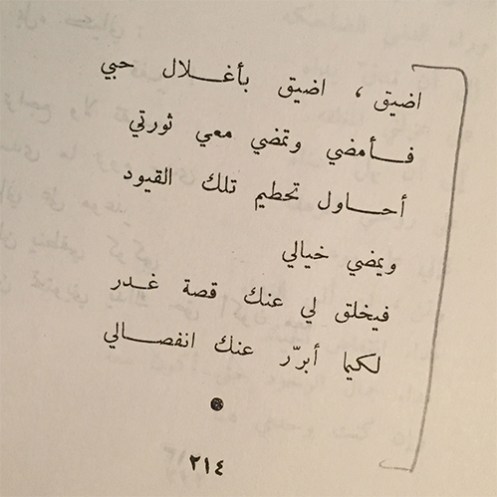 اضيق ، اضيق بأغلال حبي
فأمضي وتمضي معي ثورتي
أحاول تحطيم تلك القيود
ويمضي خيالي
فيخلق لي عنك قصة غدر
لكيما أبرّر عنك انفصالي
٢١٤